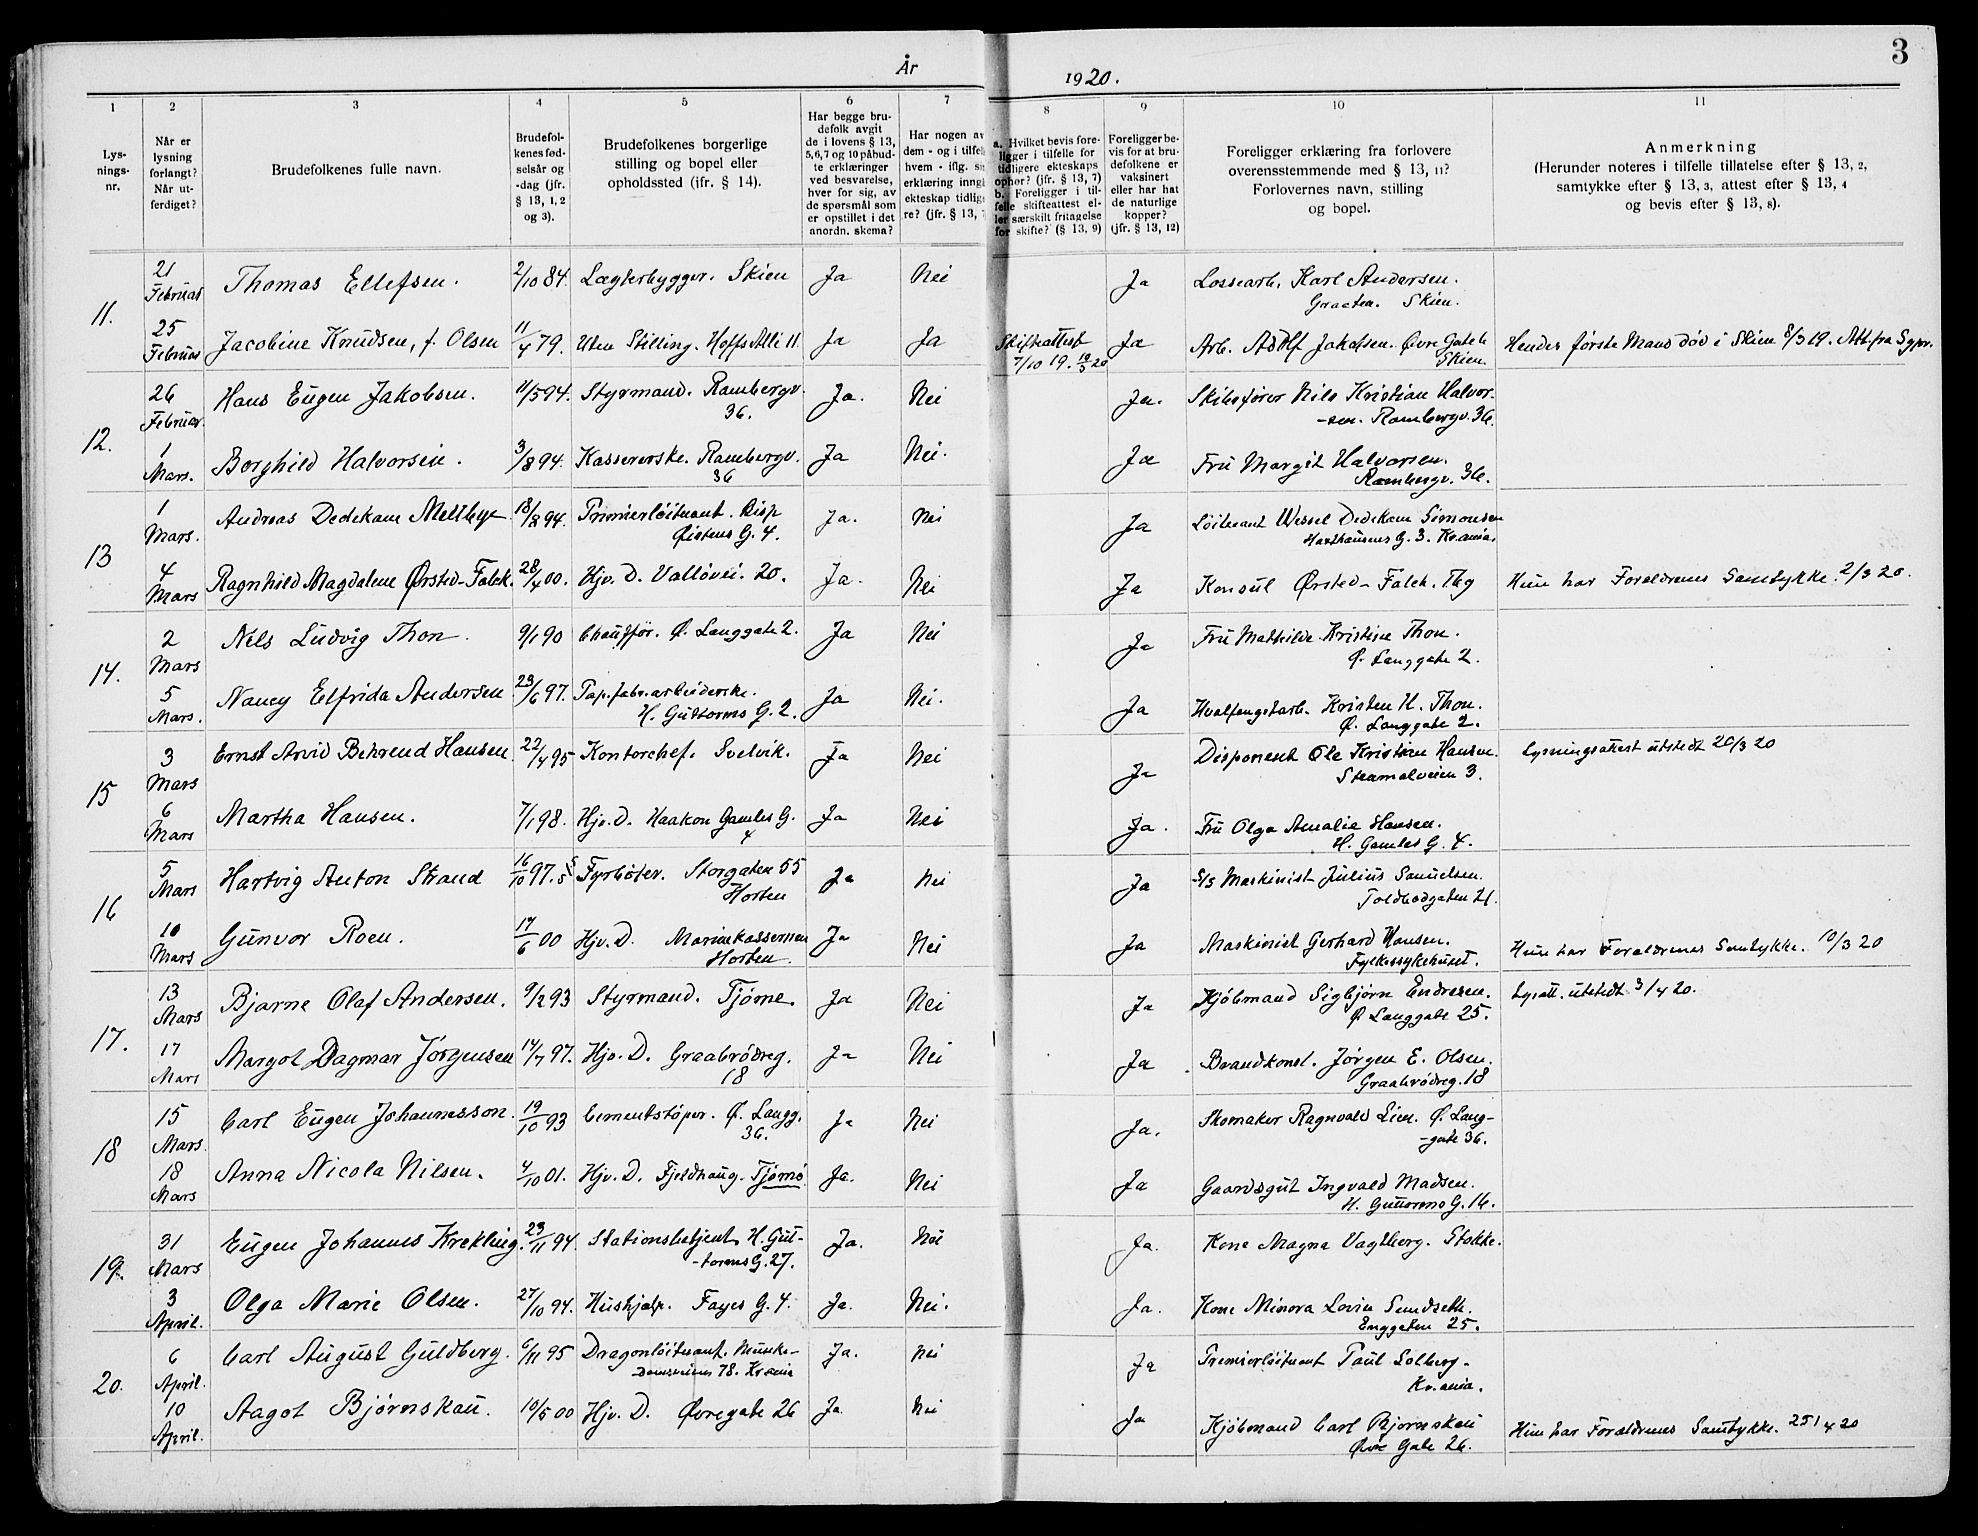 3
År 1920.
1
2
3
4
5
6
7
8
9
10
11
Lys-
nings-
nr.
Når er
lysning
forlangt?
Når ut-
ferdiget?
Brudefolkenes fulle navn.
Brudefol-
kenes fød-
selsår og
-dag (jfr.
§ 13, 1, 2
og 3).
Brudefolkenes borgerlige
stilling og bopel eller
opholdssted (ifr. § 14).
Har begge bru-
defolk avgit
de i lovens § 13,
5, 6, 7 og 10 påbud-
te erklæringer
ved besvarelse,
hver for sig, av
de spørsmål som
er opstillet i det
anordn. skema?
Har nogen av
dem - og i tilfel
hvem - iflg. si
erklæring inngå
ekteskap tidlig
re? (jfr. § 13,
a. Hvilket bevis fore-
ligger i tilfelle for
tidligere ekteskaps
ophør? (jfr. § 13, 7)
b. Foreligger i til-
felle skifteattest el-
ler særskilt fritagelse
for skifte? (§ 13, 9)
Foreligger be-
vis for at bru-
defolkene er
vaksinert
eller har hat
de naturlige
kopper?
(jfr. § 13, 12)
Foreligger erklæring fra forlovere
overensstemmende med § 13, 11?
Forlovernes navn, stilling
og bopel.
Anmerkning
(Herunder noteres i tilfelle tillatelse efter § 13, 2,
samtykke efter § 13, 3, attest efter § 13, 4
og bevis efter § 13, 8).
11. 21 Februar Thomas Ellefsen. 2/10 84. Lægterbygger. Skien Ja Nei Ja Lossearb. Karl Andersen.
Graaten. Skien.
25 Februar Jacobine Knudsen, f. Olsen 11/4 79. Uten Stilling. Hoffs Alli 11 Ja Ja Skifteattest Ja Arb. Adolf Jakobsen. Øvre Gate 6 Hendes første Mand død i Skien 8/3 19. Att. fra Sypr.
7/10 19. 10/3 20 Skien.
12. 26 Februar. Hans Eugen Jakobsen. 11/5 94. Styrmand. Rambergv. Ja. Nei Ja. Skibsfører Nils Kristian Halvor-
36. -sen. Rambergv. 36.
1 Mars. Borghild Halvorsen. 3/8 94. Kassererske. Rambergv. Ja Nei. Ja Fru Margit Halvorsen.
36 Rambergv. 36.
13 1 Mars. Andreas Dedekam Melthye 18/8 94. Primierløitnant. Bisp Ja. Nei Ja Løitnant Wessel Dedekam Simonsen
Øistens G. 4. Haxthausens G. 3. Kr.ania.
4 Mars Ragnhild Magdalene Ørsted-Falck. 28/4 00. Hjv. D. Valløvei. 20. Ja. Nei Ja Konsul Ørsted-Falck. Tbg Hun har Forældrenes Samtykke. 2/3 20.
14. 2 Mars Nils Ludvig Thon. 9/1 90 Chauffør. Ø. Langgate 2. Ja Nei Ja Fru Mathilde Kristine Thon.
Ø. Langgate 2.
5 Mars. Nancy Elfrida Andersen 23/6 97. Pap.fabr.arbeiderske. Ja Nei. Ja Hvalfangstarb. Kristen H. Thon.
H. Guttorms G. 2. Ø. Langgate 2.
15 3 Mars Ernst Arvid Behrend Hansen 22/4 95 Kontorchef. Svelvik. Ja Nei Ja Disponent Ole Kristian Hansen. Lysningsattest utstedt 20/3 20
Stenmalveien 3.
6 Mars Martha Hansen. 7/1 98. Hjv. D. Haakon Gamles G. Ja Nei Ja. Fru Olga Amalie Hansen.
4 H. Gamles G. 4.
16 5 Mars Hartvig Anton Strand 16/10 97. Fyrbøter. Storgaten 55 Ja Nei Ja Maskinist Julius Samuelsen.
Horten Toldbodgaten 21.
10 Mars Gunvor Roen. 17/6 00 Hjv. D. Marinekassernen Ja Nei Ja Maskinist Gerhard Hansen. Hun har Forældrenes Samtykke. 10/3 20
Horten. Fylkessykehuset.
17. 13 Mars Bjarne Olaf Andersen. 9/12 93 Styrmand. Tjøme. Ja Nei Ja Kjøbmand Sigbjørn Endresen. Lysatt. utstedt 3/4 20.
Ø Langgate 25.
17 Mars Margot Dagmar Jørgensen 14/7 97. Hjv. D. Graabrødreg. Ja Nei Ja Brandkonst. Jørgen E. Olsen.
18 Graabrødreg. 18
18 15 Mars. Carl Eugen Johannesson. 19/10 93 Cementstøper. Ø. Langg. Ja Nei Ja. Skomaker Ragnvald Lien. Ø. Lang-
36. -gate 36.
18 Mars Anna Nicola Nilsen. 4/10 01. Hjv. D. Fjeldhaug. Tjømø Ja. Nei Ja Gaardsgut Ingvald Madsen.
H. Guttorms G. 16.
19. 31 Mars Eugen Johannes Krekling. 23/11 94. Stationsbetjent. H. Gut- Ja. Nei Ja. Kone Magna Vagtberg. Stokke.
-torms G. 27.
3 April. Olga Marie Olsen. 27/10 94. Hushjælp. Fayes G. 4. Ja. Nei. Ja. Kone Minora Lovise Sundseth.
Enggaten 25.
20. 6 April. Carl August Guldberg. 6/11 95 Dragonløitnant. Munke- Ja. Nei Ja Premierløitnant Paul Solberg.
Damsveien 78. Kr.ania Kr.ania.
10 April. Aagot Bjørnskau. 10/5 00 Hjv. D. Øvregate 26 Ja Nei Ja Kjøbmand Carl Bjørnskau Hun har Forældrenes Samtykke. 25/4 20
Øvre Gate 26.